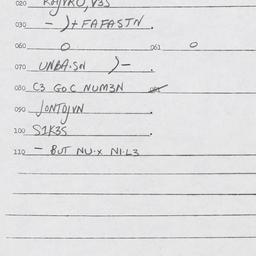 020 KOJVRO, V3S
030 - )+ FAFASTN
060 O 061 O
070 UNBA.SN )- .
080 C3 GOC NUM3N
090 JONTOJVN .
100 S1K3S .
110 - BUT NU.X NI.L3